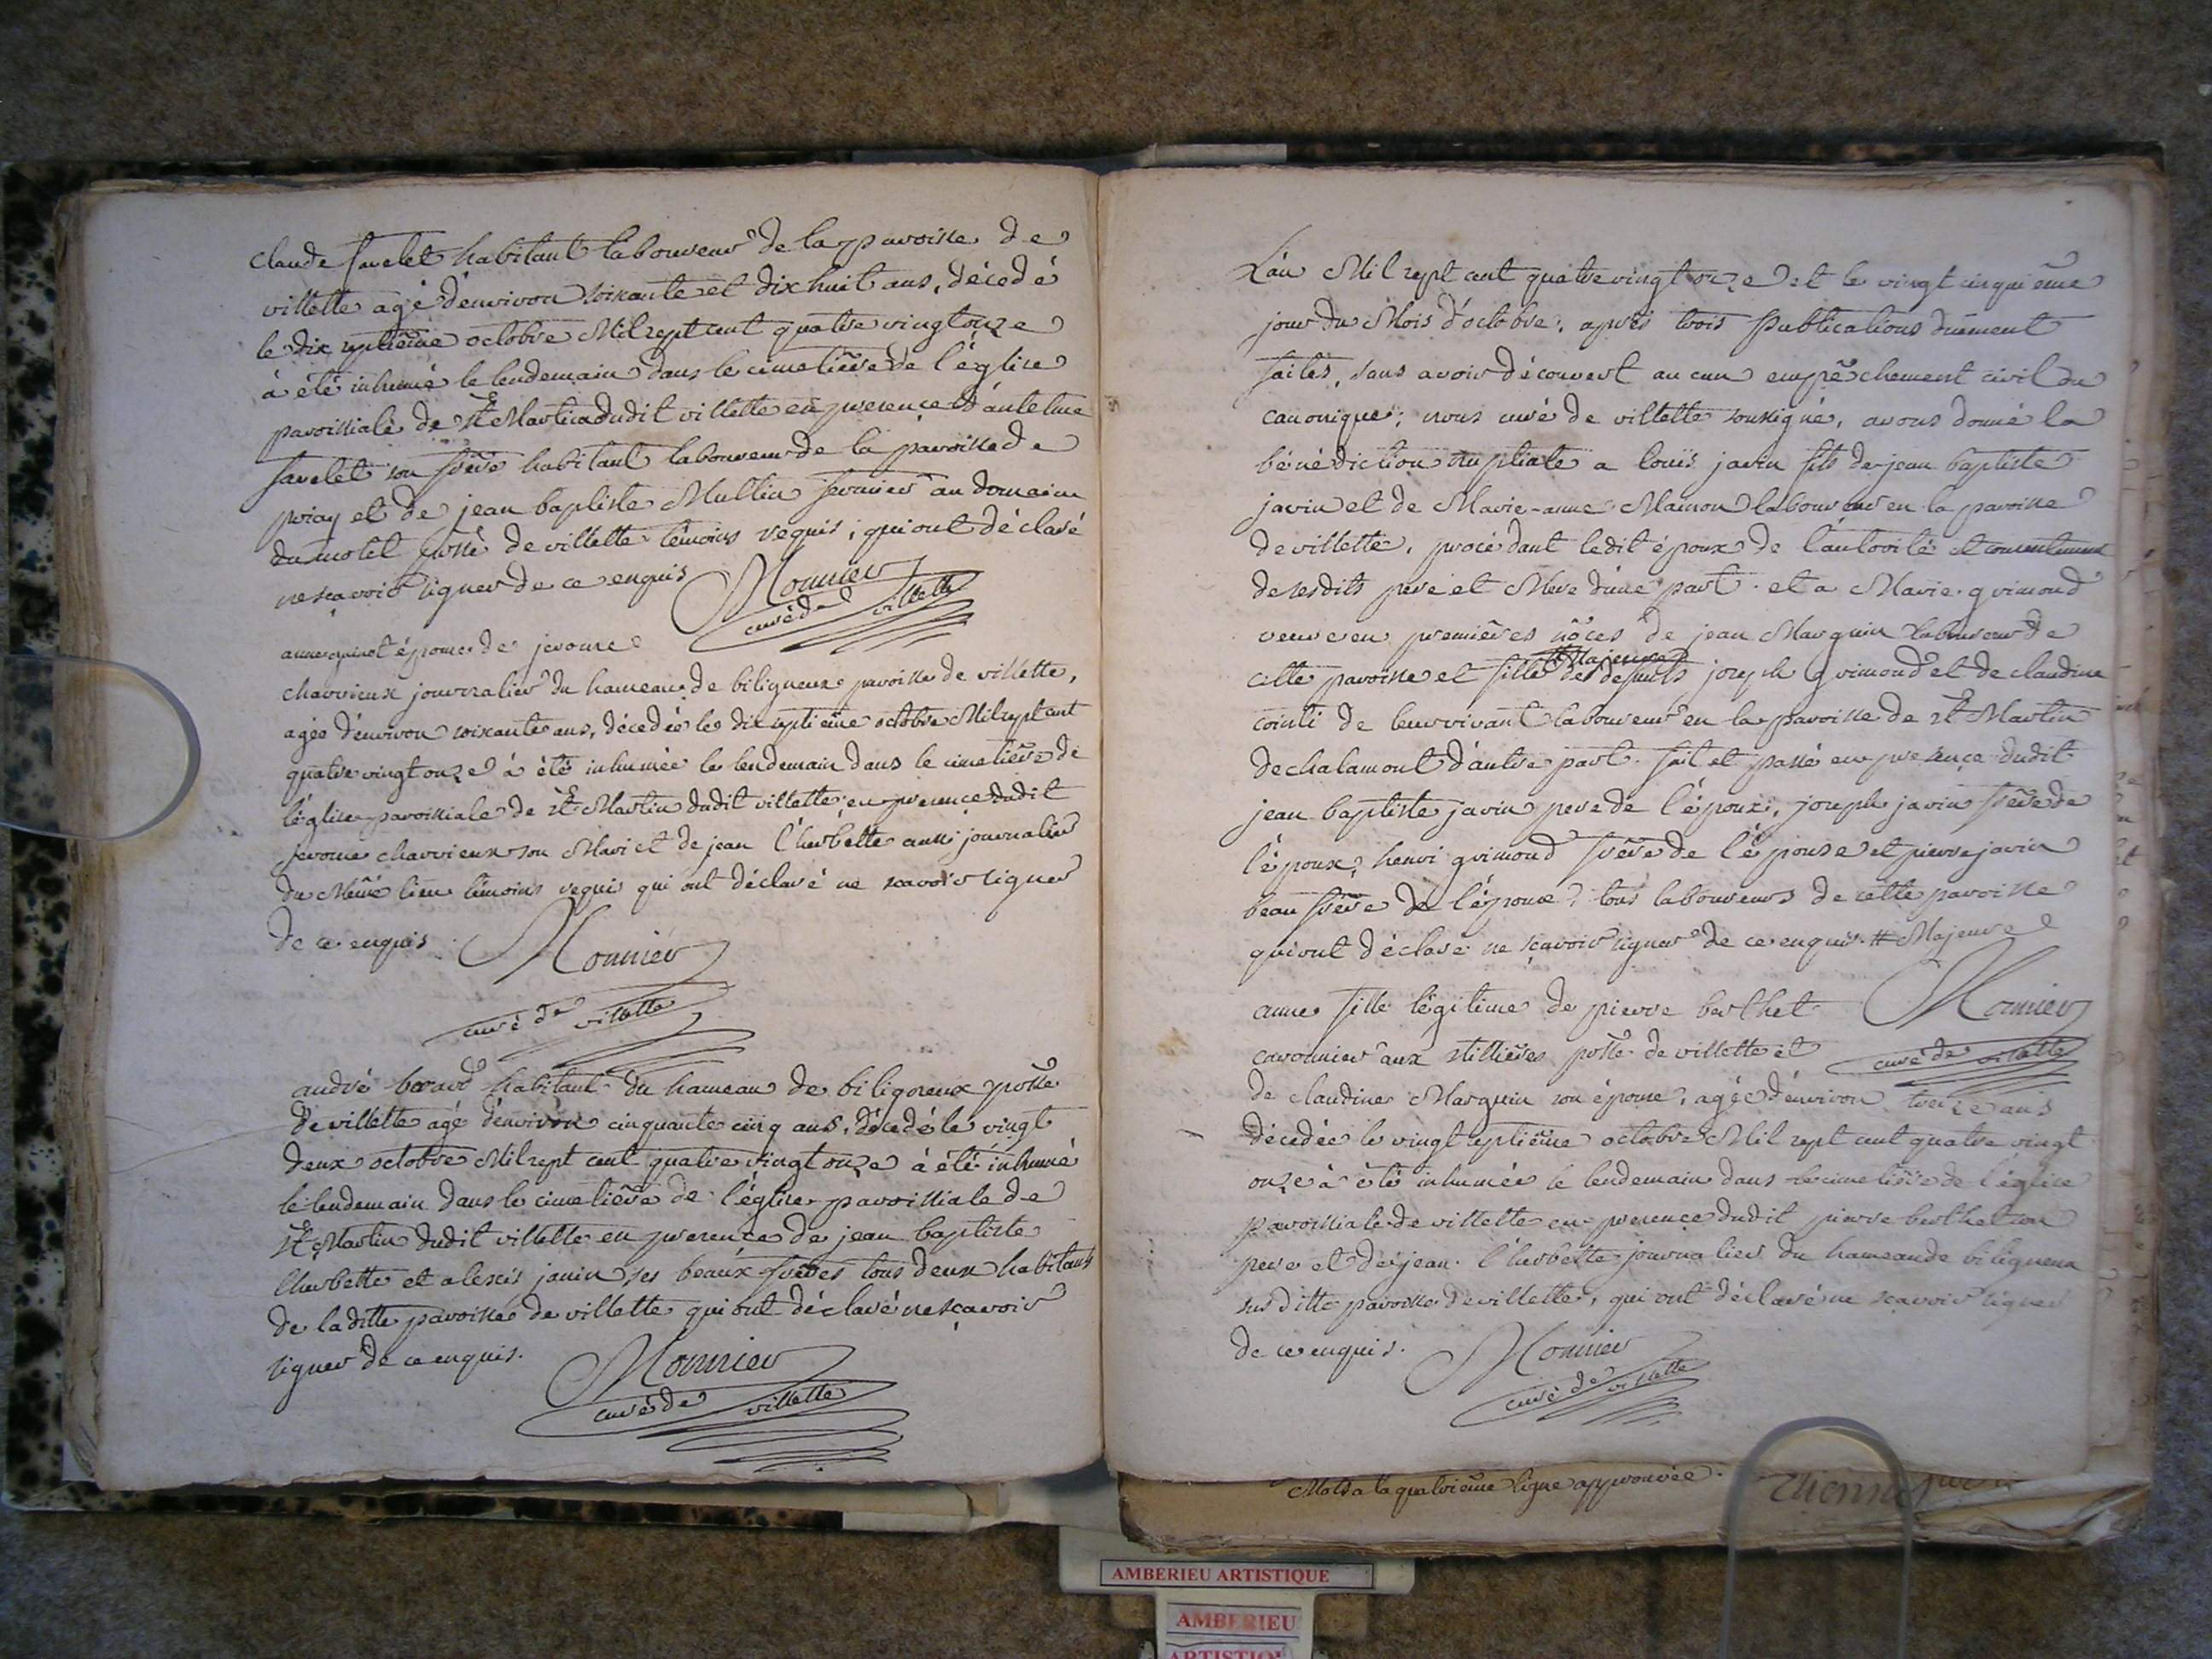 claude favelet habitant laboureur de la paroisse de
villette agé d'environ soixante et dix huit ans, décedé
le dix septiême octobre Mil sept cent quatre vingt onze
à été inhumé le lendemain dans le cimetiêre de l'église
paroissiale de st Martin dudit villette en presence d'antelme
favelet son frêre habitant laboureur de la paroisse de
priay et de jean baptiste Multin fermier au domaine
du molet psse de villette têmoins requis, qui ont déclaré
ne sçavoir signer de ce enquis Monnier
curé de villette
anne guinet épouse de jerome
charvieux journalier du hameau de biligneux paroisse de villette,
agée d'environ soixante ans, décedée le dix septiême octobre Mil sept cent
quatre vingt onze à été inhumée le lendemain dans le cimetiêre de
l'église paroissiale de st Martin dudit villette en presence dudit
jerome charvieux son Mari et de jean l'herbette aussi journalier
du Même lieu têmoins requis qui ont déclaré ne scavoir signer
de ce enquis. Monnier
curé de villette
andré habitant du hameau de biligneux psse
de villette agé d'environ cinquante cinq ans, décedé le vingt
deux octobre Mil sept cent quatre vingt onze à été inhumé
le lendemain dans le cimetiêre de l'église paroissiale de
st Martin dudit villette en presence de jean baptiste
lherbette et alexis janin ses beaux frêres tous deux habitants
de laditte paroisse de villette qui ont déclaré ne sçavoir
signer de ce enquis. Monnier
curé de villette
L'an Mil sept cent quatre vingt onze et le vingt cinquiême
jour du Mois d'octobre, aprés trois publications duëment
faites, sans avoir découvert aucun empêchement civil ou
canonique; nous curé de villette soussigné, avons donné la
bénédiction nuptiale a louis javin fils de jean baptiste
javin et de Marie-anne Mamon laboureur en la paroisse
de villette, procédant ledit époux de l'autorité et consentement
de sesdits pere et Mere d'une part. et a Marie guimond
veuve en premiêres nôces de jean Marguin laboureur de
# Majeure
cette paroisse et fille des defunts joseph guimond et de claudine
cointi de leur vivant laboureur en la paroisse de st Martin
de chalamont d'autre part. fait et passé en presence dudit
jean baptiste javin pere de l'époux, joseph javin frêre de
l'époux, henri guimond frêre de l'épouse et pierre javin
beau frêre de l'époux, tous laboureurs de cette paroisse
qui ont déclaré ne sçavoir signer de ce enquis. # Majeure
anne fille légitime de pierre berthet Monnier
caronnier aux stilliêres psse de villette et curé de villette
de claudine Marguin son épouse, agée d'environ treize ans
décedée le vingt septiême octobre Mil sept cent quatre vingt
onze à été inhumée le lendemain dans le cimetiêre de l'église
paroissiale de villette en presence dudit pierre berthet son
pere et de jean l'herbette journalier du hameau de biligneux
sus ditte paroisse de villette, qui ont déclaré ne scavoir signer
de ce enquis. Monnier
curé de villette
Mots a la quatriême ligne approuvée.
AMBERIEU ARTISTIQUE
AMBERIEU
ARTISTIQUE